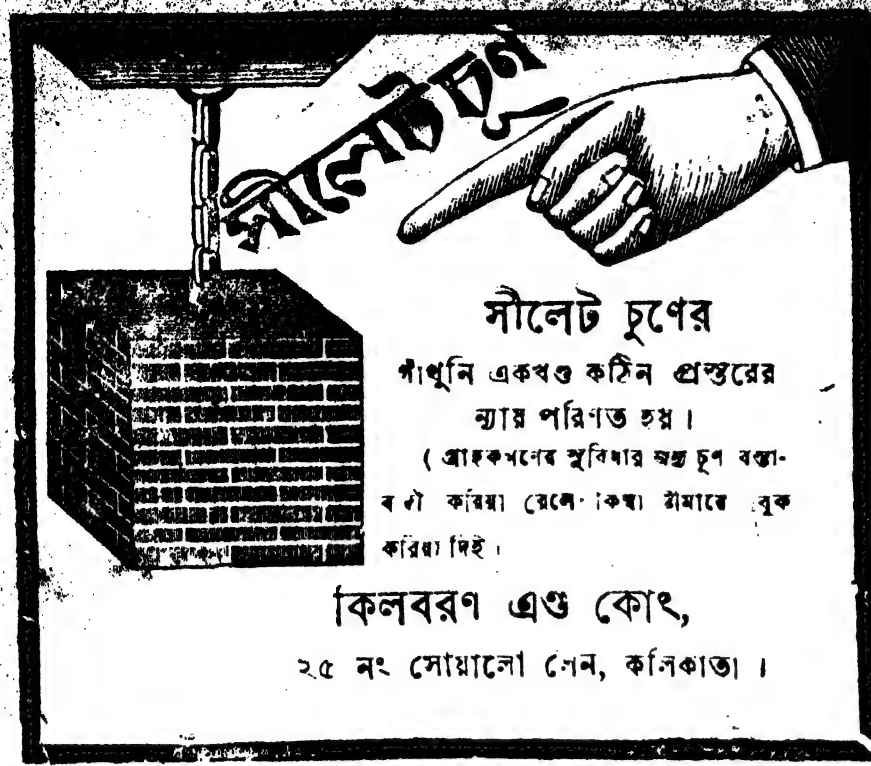 সীলেট চূণ
সীলেট চুণের
গাঁথুনি একখণ্ড কঠিন প্রস্তরের
ন্যায় পরিণত হয় ।
( গ্রাহকগণের সুবিধার জন্য চূণ বস্তা-
বন্দী করিয়া রেলে কিম্বা ষ্টীমারে বুক
করিয়া দিই ।
কিলবরণ এণ্ড কোং,
২৫ নং সোয়ালো লেন, কলিকাতা ।